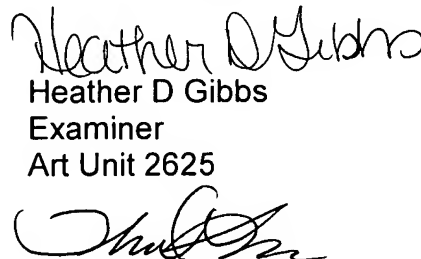 Heather D Gibbs
Heather D Gibbs
Examiner
Art Unit 2625